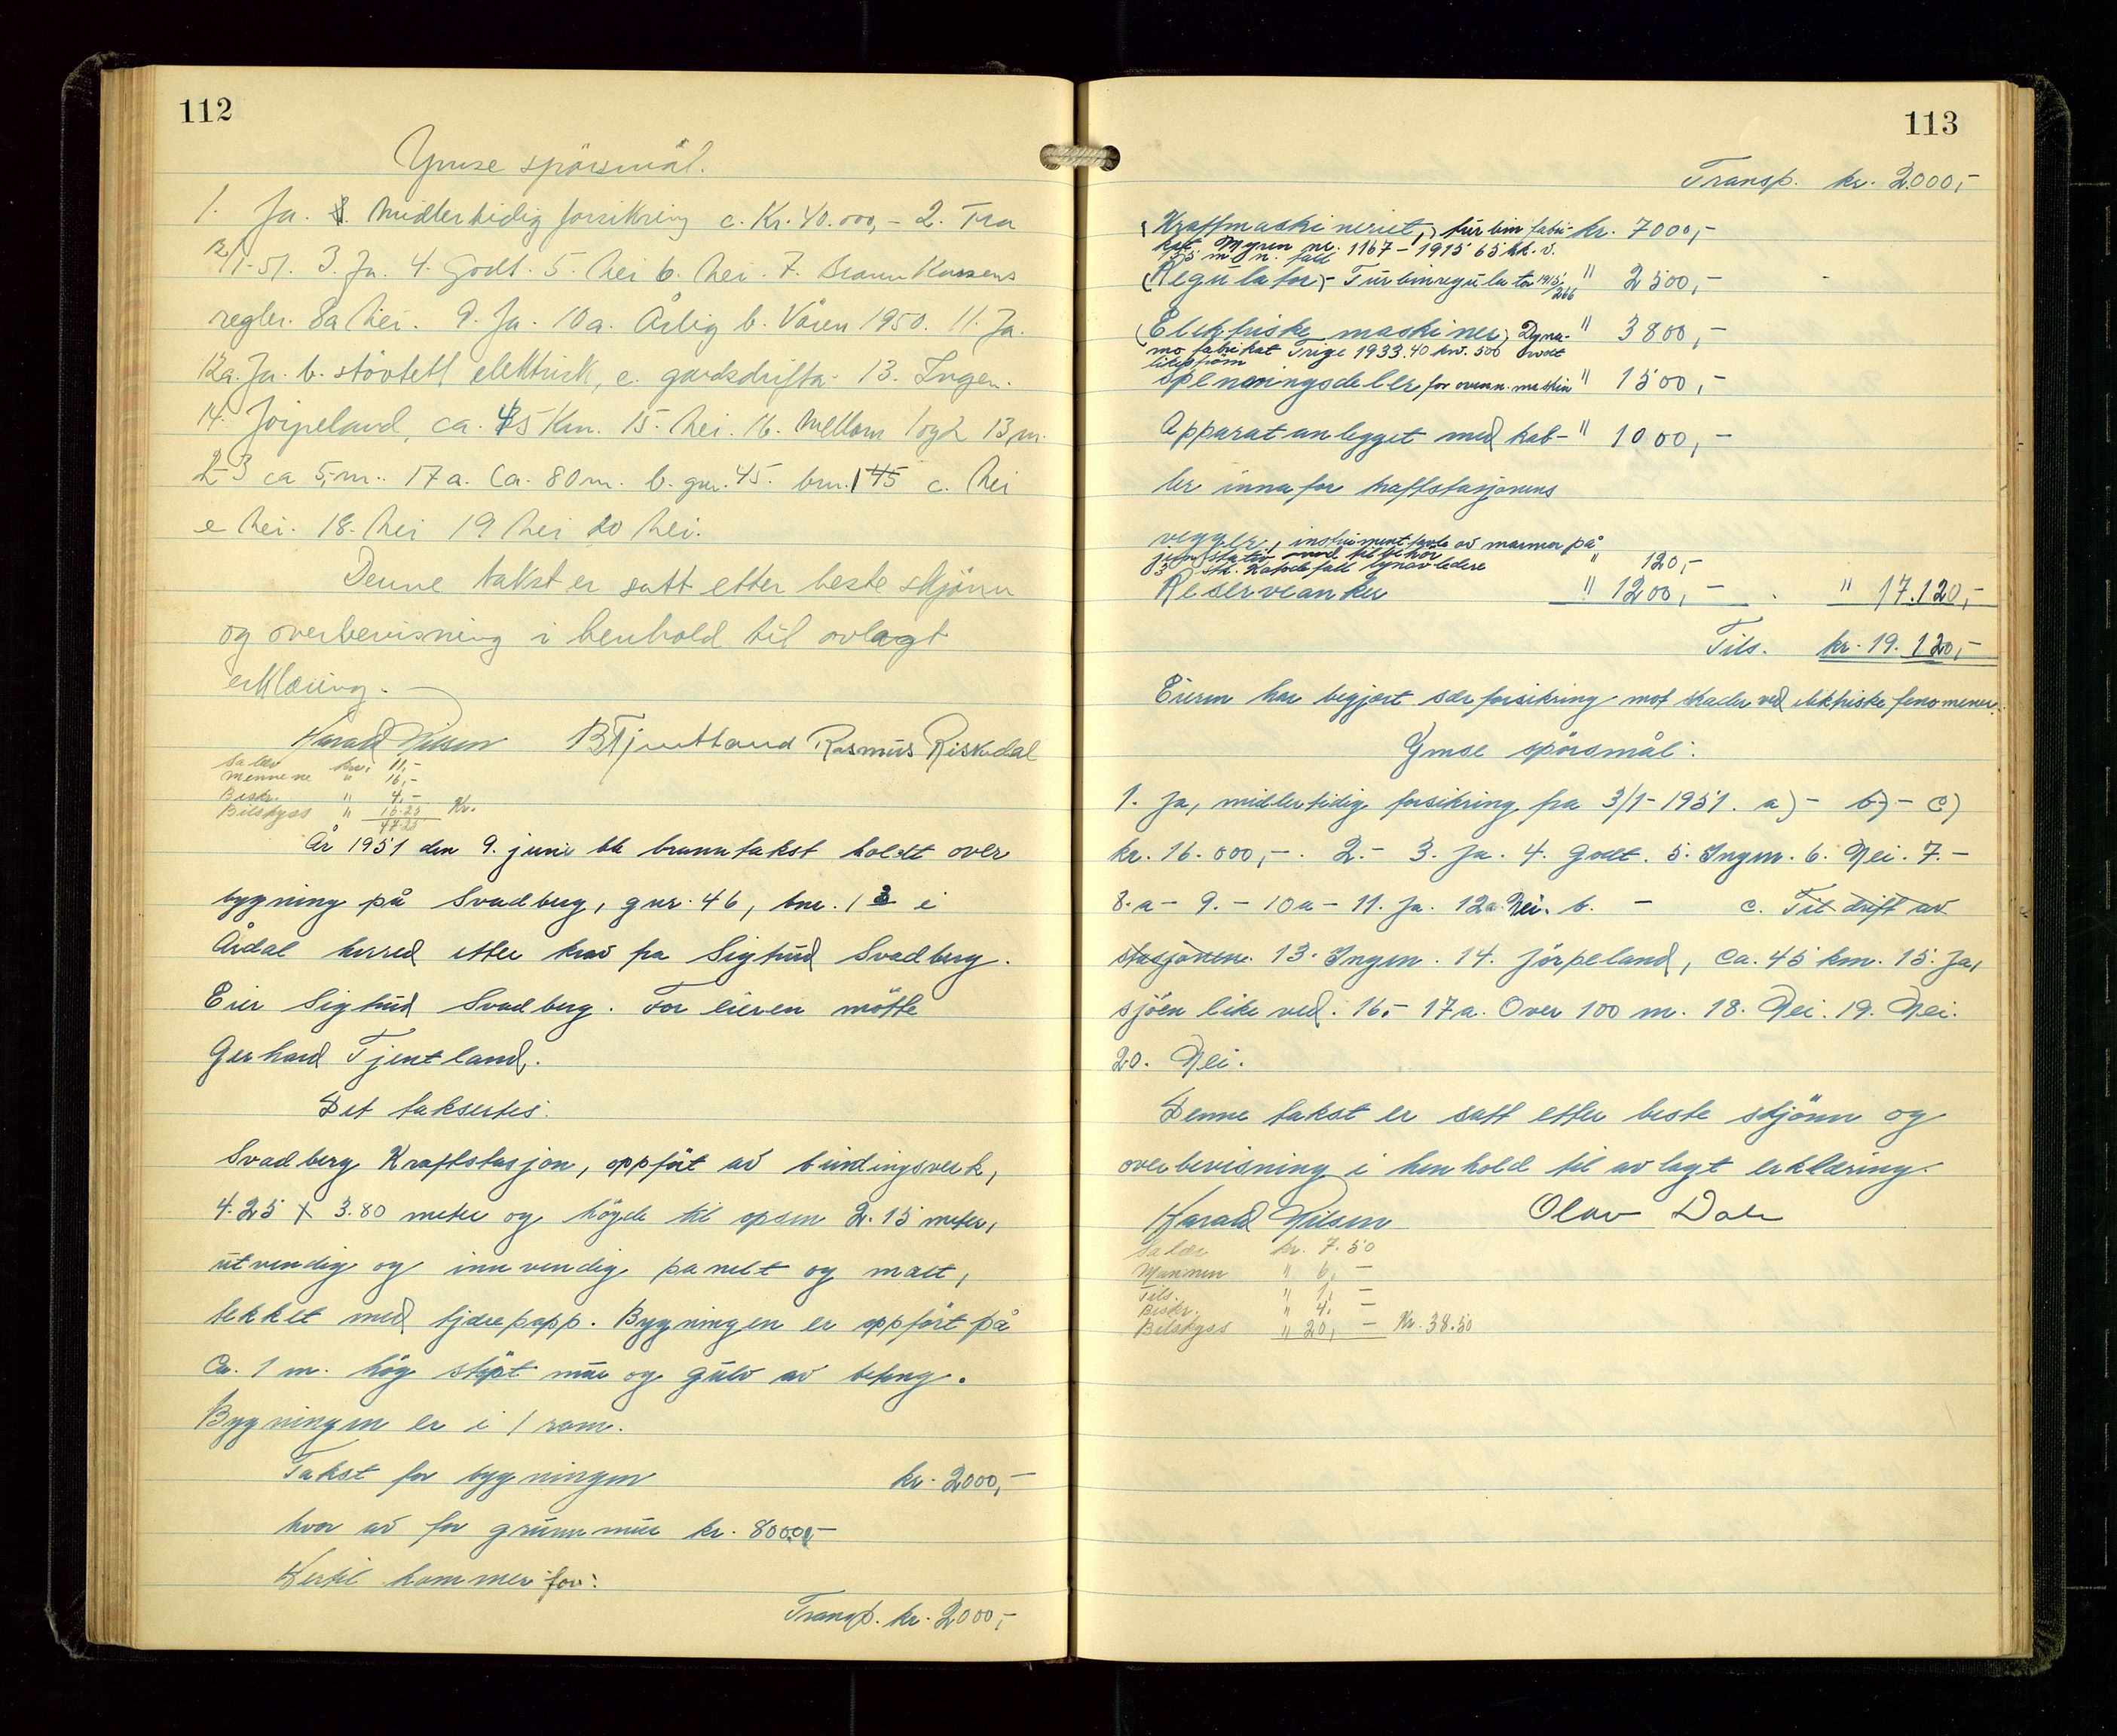 112
Ymse spörsmål.
1. Ja. Midlertidig forsikring c. Kr. 40.000,- 2. Fra
12/1-51. 3. Ja. 4. Godt. 5. Nei 6. Nei. 7. Brannkassens
regler. 8a Nei. 9. Ja. 10a. Årlig b. Våren 1950. 11. Ja.
12a. Ja. b. stövtett elektrisk, c. gardsdrifta. 13. Ingen.
14. Jörpeland, ca. 45 Km. 15. Nei. 16. Mellom 1 og 2 13,m.
2-3 ca 5,m. 17a. Ca. 80 m. b. gnr. 45. bnr. 1 45 c. Nei
e Nei. 18. Nei 19 Nei 20 Nei.
Denne takst er satt etter beste skjönn
og overbevisning i henhold til avlagt
erklæring.
Harald Nilsen B Tjentland Rasmus Riskedal
Salær kr. 11,-
Mennene " 16,-
Beskr. " 4,-
Bilskyss " 16.25 Kr.
47.25
År 1951 den 9. juni ble branntakst holdt over
bygning på Svadberg, gnr. 46, bnr. 13 i
Årdal herred etter krav fra Sigtrud Svadberg.
Eier Sigtrud Svadberg. For eieren mötte
Gerhard Tjentland.
Det taksertes:
Svadberg Kraftstasjon, oppfört av bindingsverk,
4.25 x 3.80 meter og högde til opsen 2.15 meter,
utvendig og innvendig panelt og malt,
tekket med tjærepapp. Bygningen er oppfört på
Ca. 1 m. hög stöpt mur og gulv av betong.
Bygningen er i 1 rom.
Takst for bygningen kr. 2000,-
hvor av for grunnmur kr. 800,-
Hertil kommer for:
Transp. kr. 2000,-
113
Transp. kr. 2000,-
(Kraftmaskineriet,) turbin fabri- kr. 7000,-
kat Myren nr. 1167 - 1915 65 hk. v.
35 m. n. fall
(Regulator) - Turbinregulator 1915/266 " 2500,-
(Elektriske maskiner) Dyna- " 3800,-
mo fabrikat Trige 1933. 40 kw. 500 hvolt
likestrøm
Spenningsdeler for ovenn. maskin " 1500,-
Apparatanlegget med kab- " 1000,-
ler innafor kraftstasjonens
vegger, instrumenttavle av marmor på
jernstativ med tilbehör
3 stk. Katodefall lynavledere " 120,-
Reserveanker " 1200,- " 17.120,-
Tils. kr. 19.120,-
Eieren har begjært særforsikring mot skader ved elektriske fenomener.
Ymse spörsmål:
1. Ja, midlertidig forsikring fra 3/1-1951. a) - b) - c)
kr. 16.000,-. 2.- 3. Ja. 4. Godt. 5. Ingen. 6. Nei. 7.-
8.a- 9.- 10a- 11. Ja. 12a. Nei. b. - c. Til drift av
stasjonen. 13. Ingen. 14. Jörpeland, Ca. 45 km. 15. Ja,
sjöen like ved. 16.- 17a. Over 100 m. 18. Nei. 19. Nei.
20. Nei.
Denne takst er satt etter beste skjönn og
overbevisning i henhold til avlagt erklæring.
Harald Nilsen Olav Dale
Salær kr. 7.50
Mannen " 6,-
Tils. " 1,-
Beskr. " 4,-
Bilskyss " 20,- Kr. 38.50